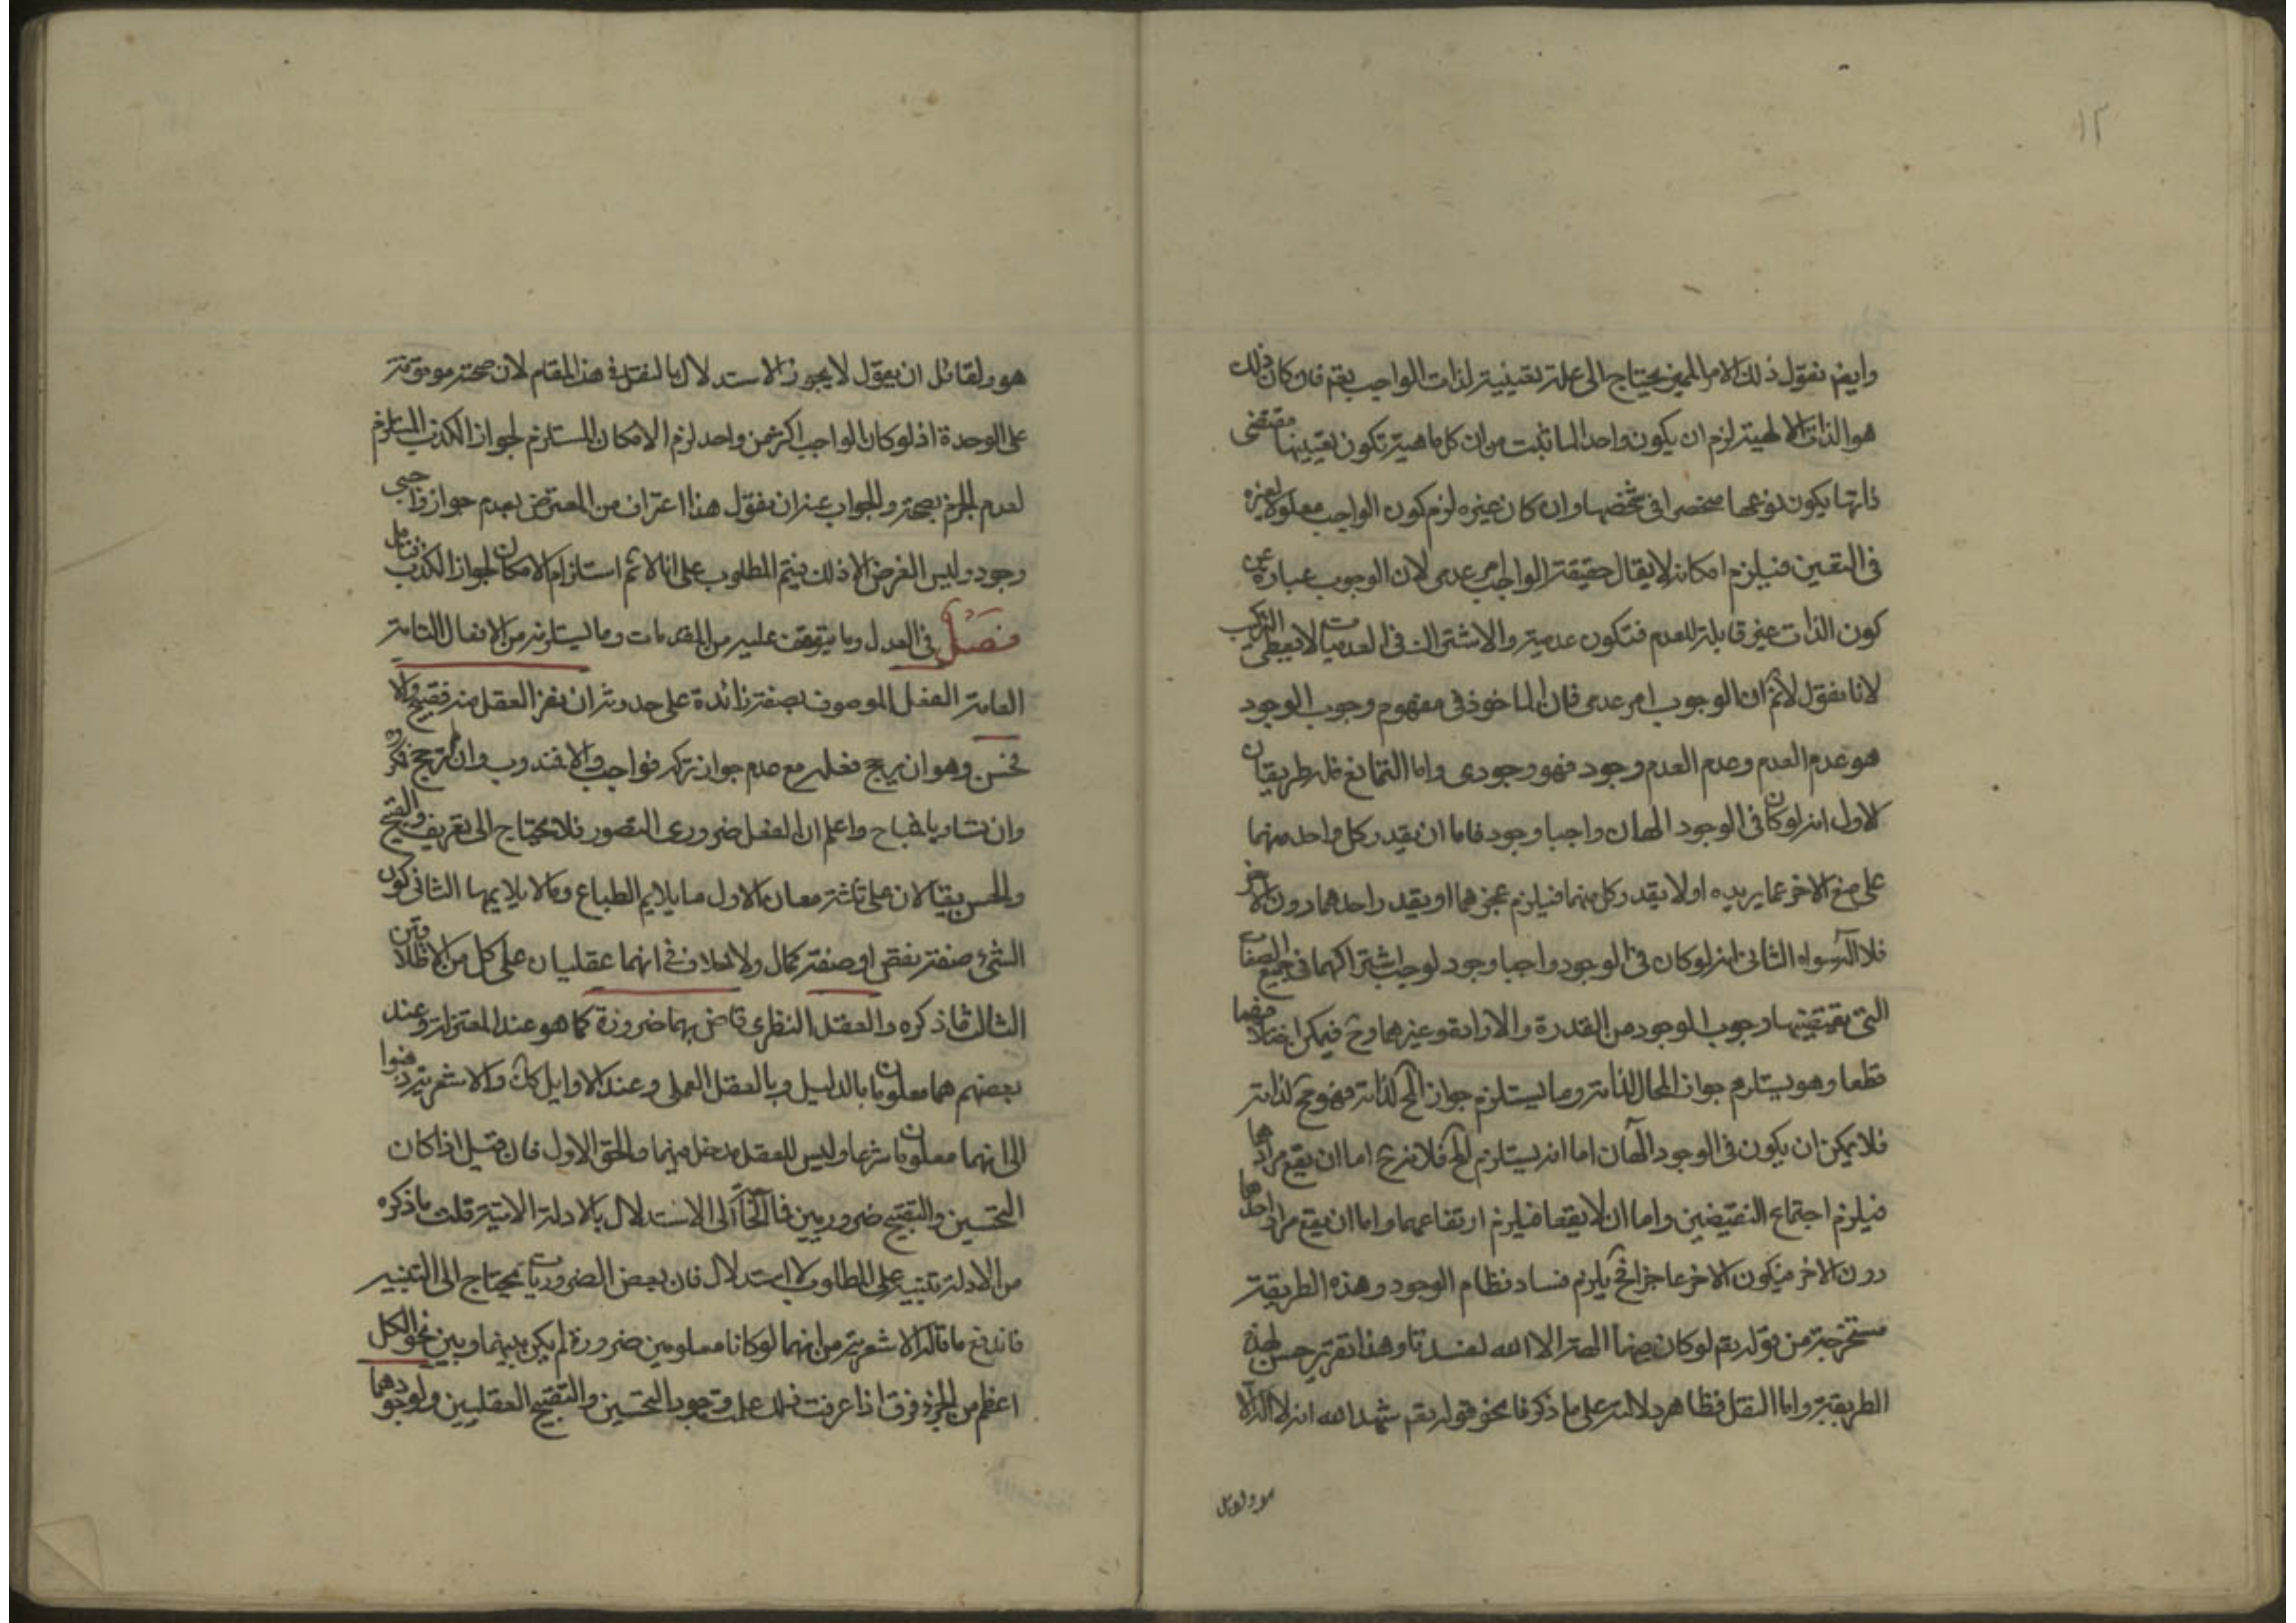 ١٢
وايضم نقول ذلك الامر المميز يحتاج الى علة تعيينية لذات الواجب يقم فان كان ذلك
هو الذات الالهية لزم ان يكون واحدا لما ثبت من ان كل ماهية تكون تعيينها مقتضى
ذاتها يكون نوعها منحصرا فى شخصها وان كان غيره لزم كون الواجب معلولا لغيره
فى التعين فيلزم امكانه لا يقال حقيقة الواجب امر عدمى لان الوجوب عبارة عن
كون الذات غير قابلة للعدم فتكون عدمية والاشتراك فى العدميات لا يعطى التركيب
لانا نقول لانم ان الوجوب امر عدمى فان الماخوذ فى مفهوم وجوب الوجود
هو عدم العدم وعدم العدم وجود فهو وجودى واما التمانع فله طريقان
الاول انه لو كان فى الوجود الهان واجبا وجود فاما ان يقدر كل واحد منهما
على منع الاخر عما يريده او لا يقدر كل منهما فيلزم عجزهما او يقدر احدهما دون الاخر
فلا اله سواه الثانى انه لو كان فى الوجود واجبا وجود لوجب اشتراكهما فى جميع الصفات
التى يقتضيها وجوب الوجود من القدرة والارادة وغيرهما وح فيمكن
قطعا وهو يستلزم جواز المحال لذاته وما يستلزم جواز المح لذاته فهو مح لذاته
فلا يمكن ان يكون فى الوجود الهان اما انه يستلزم المح فلانه ح اما ان يقع مرادهما
فيلزم اجتماع النقيضين واما ان لا يقعا فيلزم ارتفاعهما واما ان يقع مراد احدهما
دون الاخر فيكون الاخر عاجزا فح يلزم فساد نظام الوجود وهذه الطريقة
مستخرجة من قوله تعم لو كان فيهما الهة الا الله لفسدتا وهذا تقرير حسن لهذه
الطريقة واما النقل فظاهر دلالته على ما ذكرنا نحو قوله تعم شهد الله انه لا اله الا
هو ولقائل
هو ولقائل ان يقول لا يجوز الاستدلال بالنقل فى هذا المقام لان صحته موقوفة
على الوحدة اذ لو كان الواجب اكثر من واحد لزم الامكان المستلزم لجواز الكذب المستلزم
لعدم الجزم بصحته والجواب عنه ان نقول هذا اعتراف من المعترض بعدم جواز واجبى
وجود وليس الغرض الا ذلك فيتم المطلوب على انا لا نم استلزام الامكان لجواز الكذب فتامل
فصل فى العدل وما يتوقف عليه من المقدمات وما يستلزمه من الافعال التامة
العامة الفعل الموصوف بصفة زائدة على حدوثه ان نفر العقل منه فقبيح والا
فحسن وهو ان يرجح فعله مع عدم جواز تركه فواجب والا فمندوب وان لم ترجح فمكروه
وان تساويا فمباح واعلم ان الفعل ضرورى التصور فلا يحتاج الى تعريف والقبح
والحسن يقالان على ثلثة معان الاول ما يلايم الطباع وما لا يلايمها الثانى كون
الشئ صفة نقص او صفة كمال ولا خلاف فى انهما عقليان على كل من الاطلاقين
الثالث ما ذكره والعقل النظرى قاض بهما ضرورة كما هو عند المعتزلة وعند
بعضهم هما معلومان بالدليل وبالعقل العملى وعند الاوايل كك والاشعرية ذهبوا
الى انهما معلومان شرعا وليس للعقل مدخل فيهما والحق الاول فان قيل اذا كان
التحسين والتقبيح ضروريين فما الحاجة الى الاستدلال بالادلة الاتية قلت ما ذكره
من الادلة تنبيه على المطلوب لا استدلال فان بعض الضروريات يحتاج الى التنبيه
فاندفع ما قاله الاشعرية من انهما لو كانا معلومين ضرورة لم يكن بينهما وبين نحو الكل
اعظم من الجزء فرق اذا عرفت ذلك علمت وجوب التحسين والتقبيح العقليين ولوجودهما